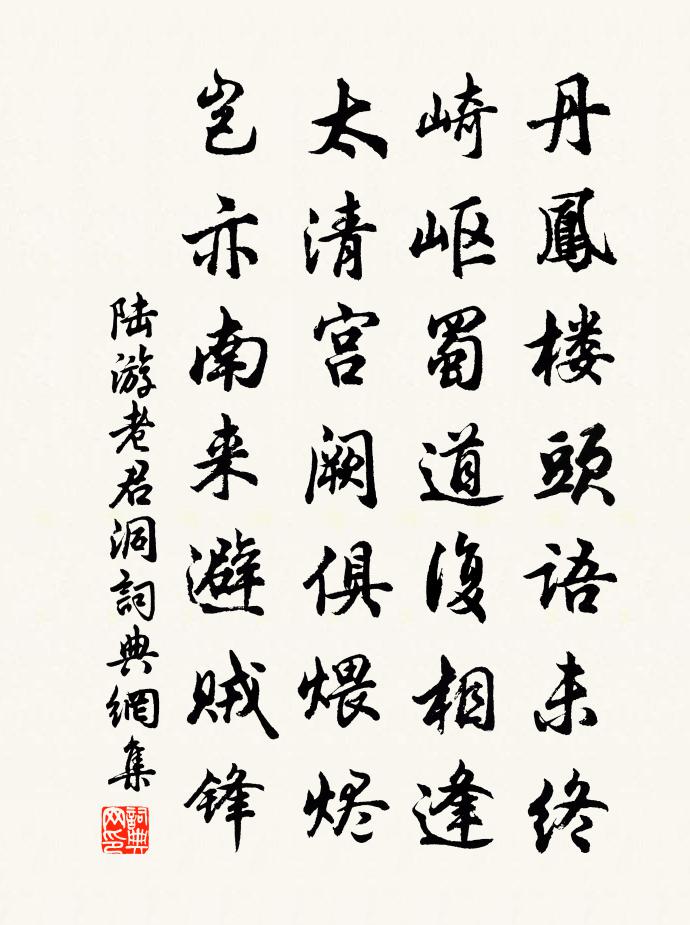 丹鳳楼頭語未终
崎岖蜀道復相逢
太清宫阙俱煨烬
岂亦南来避贼锋
陆游老君洞詞典網集
詞典网印